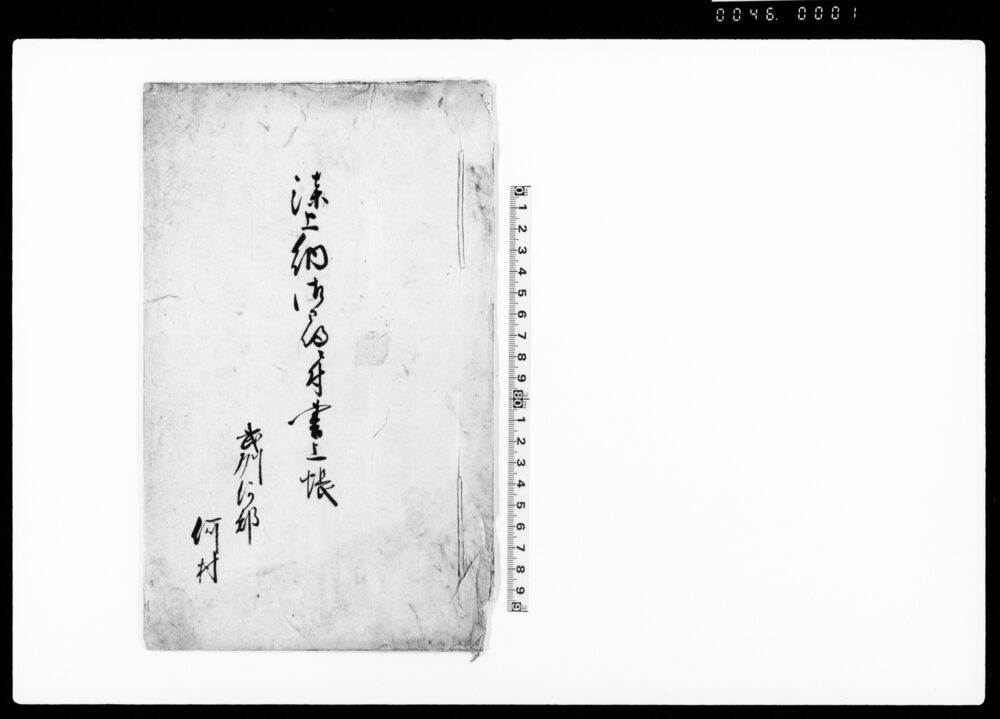 0046. 0001
漆上納御尋ニ付書上帳
武州何郡
何村
0 1 2 3 4 5 6 7 8 9 1 2 3 4 5 6 7 8 9